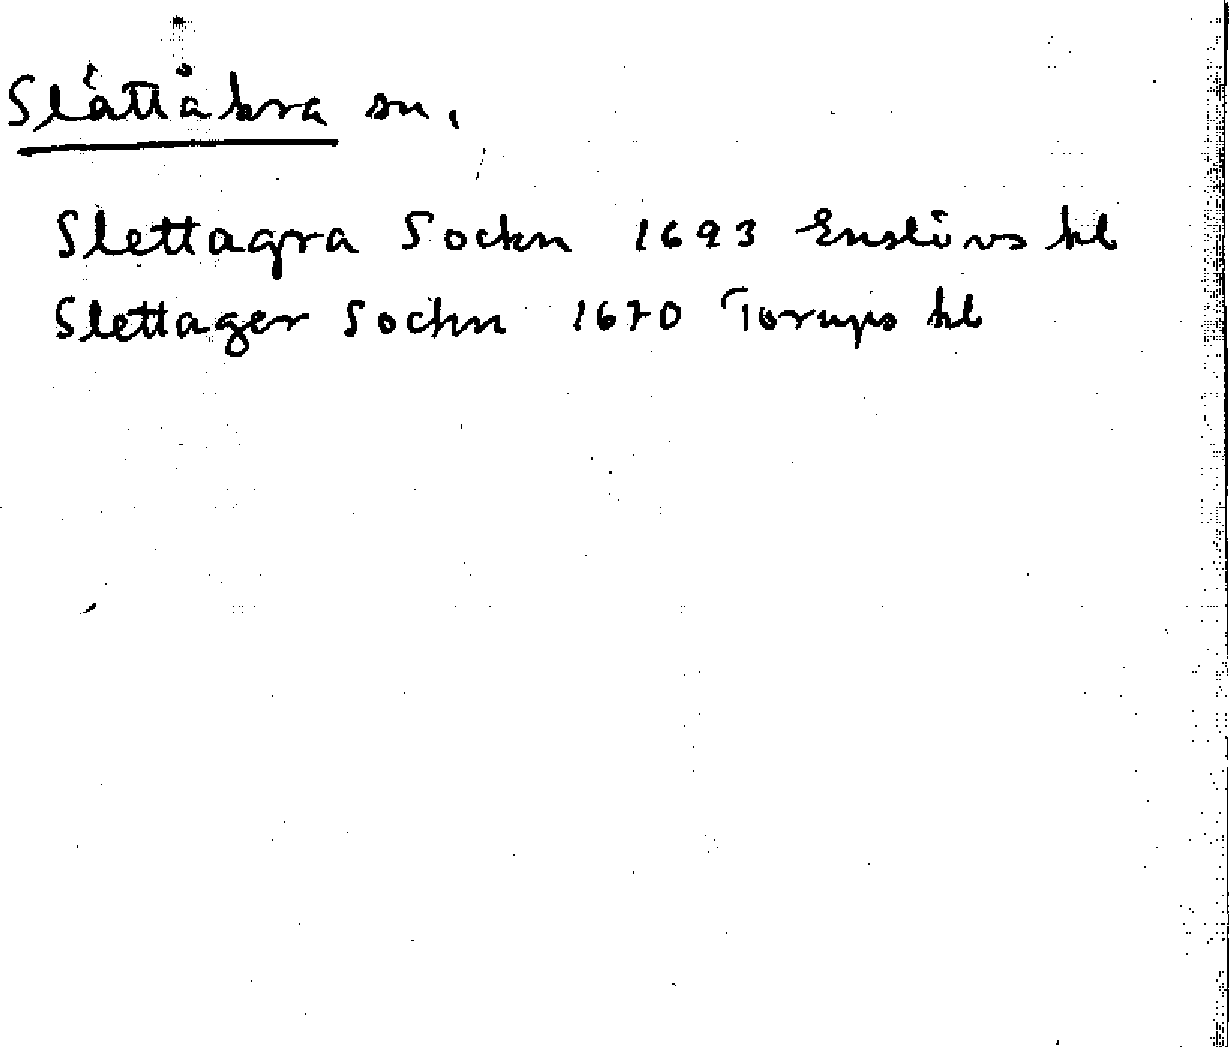 Slättåkra sn.
Slettagra Sockn 1693 Enslövs kl
Slettager Sockn 1670 Torups kl